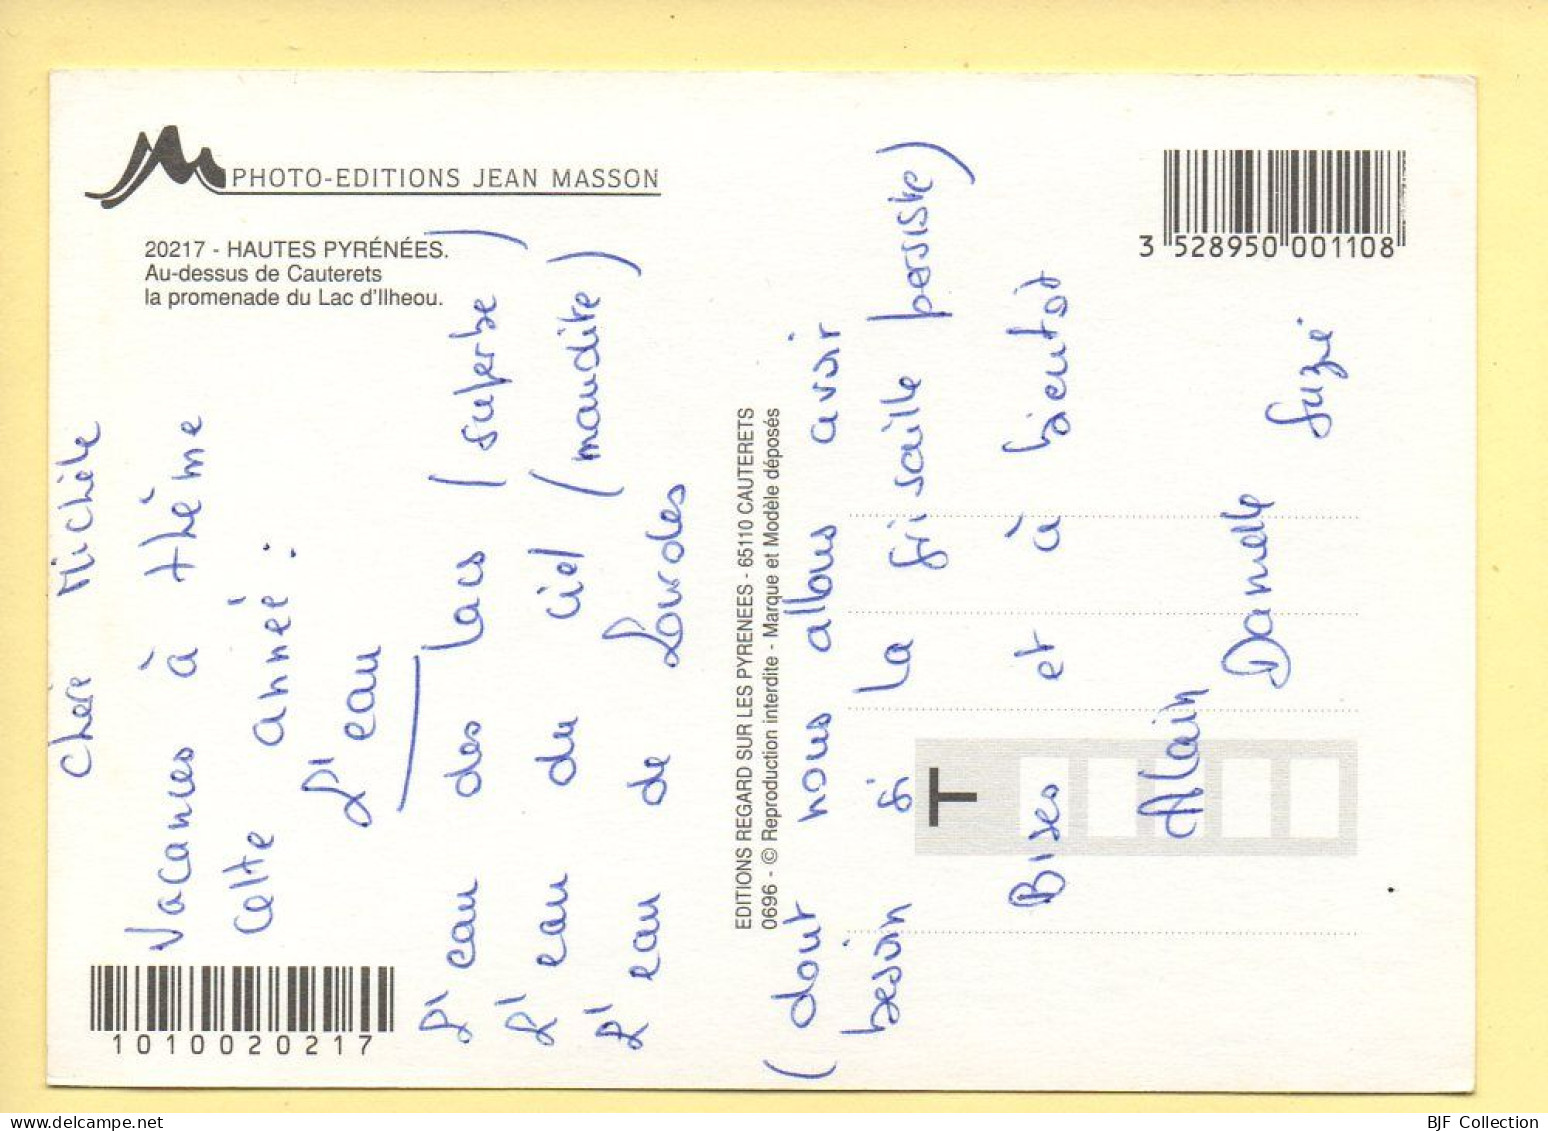 PHOTO-EDITIONS JEAN MASSON
20217 - HAUTES PYRÉNÉES.
Au-dessus de Cauterets
la promenade du Lac d'Ilheou.
3 528950 001108
Chère Michèle
Vacances à thème
cette année :
L'eau
L'eau des lacs (superbe)
L'eau du ciel (maudite)
L'eau de Lourdes
EDITIONS REGARD SUR LES PYRENEES - 65110 CAUTERETS
0696 - © Reproduction interdite - Marque et Modèle déposés
(dont nous allons avoir
besoin si la grisaille persiste)
Bises et à bientôt
Alain Danielle Suzie
T
1010020217
BJF Collection